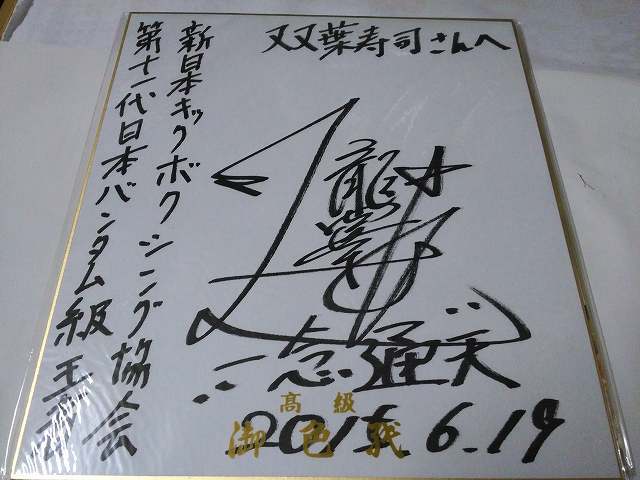 双葉寿司さんへ
新日本キックボクシング協会
第十一代日本バンタム級王者
一念通天
2015.6.19
高級
御色紙